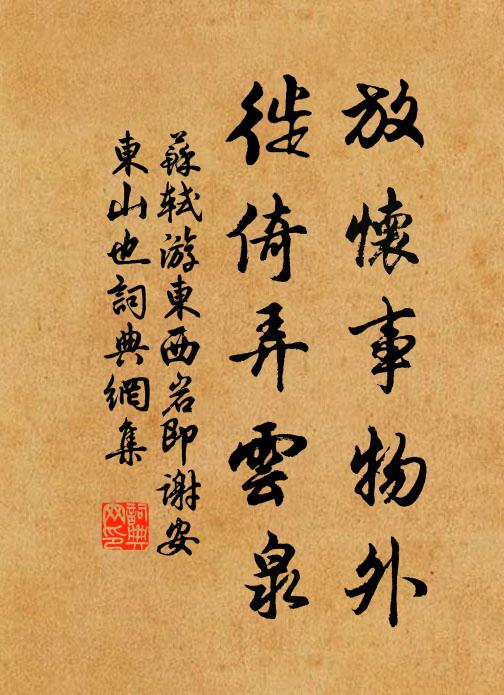 放懷事物外
徙倚弄雲泉
蘇軾游東西岩即謝安
東山也詞典網集
詞典
网印